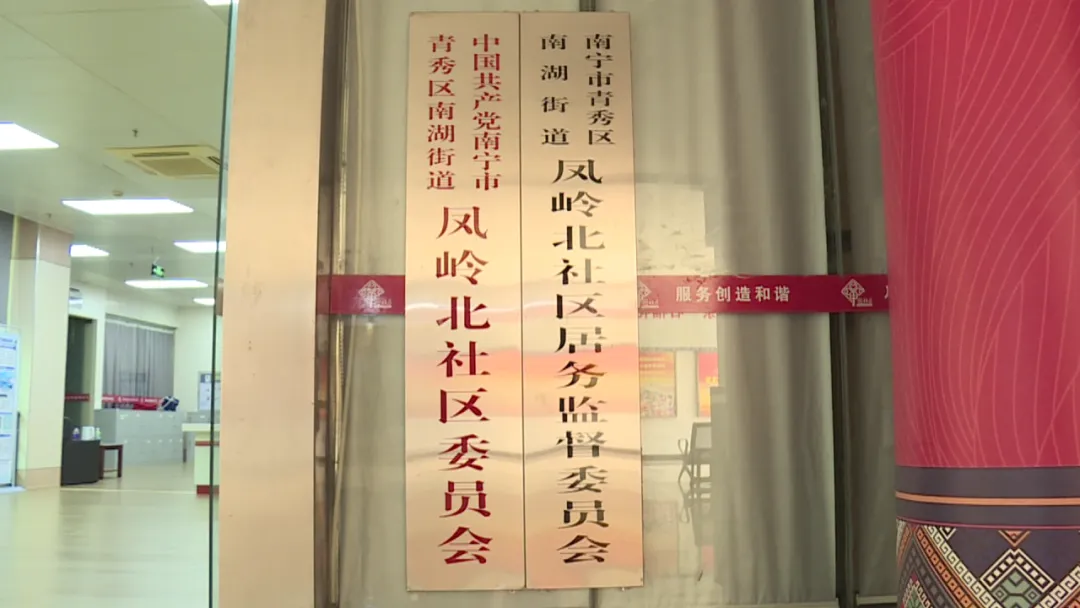 中国共产党南宁市
青秀区南湖街道
凤岭北社区委员会
南宁市青秀区
南湖街道
凤岭北社区居务监督委员会
服务创造和谐